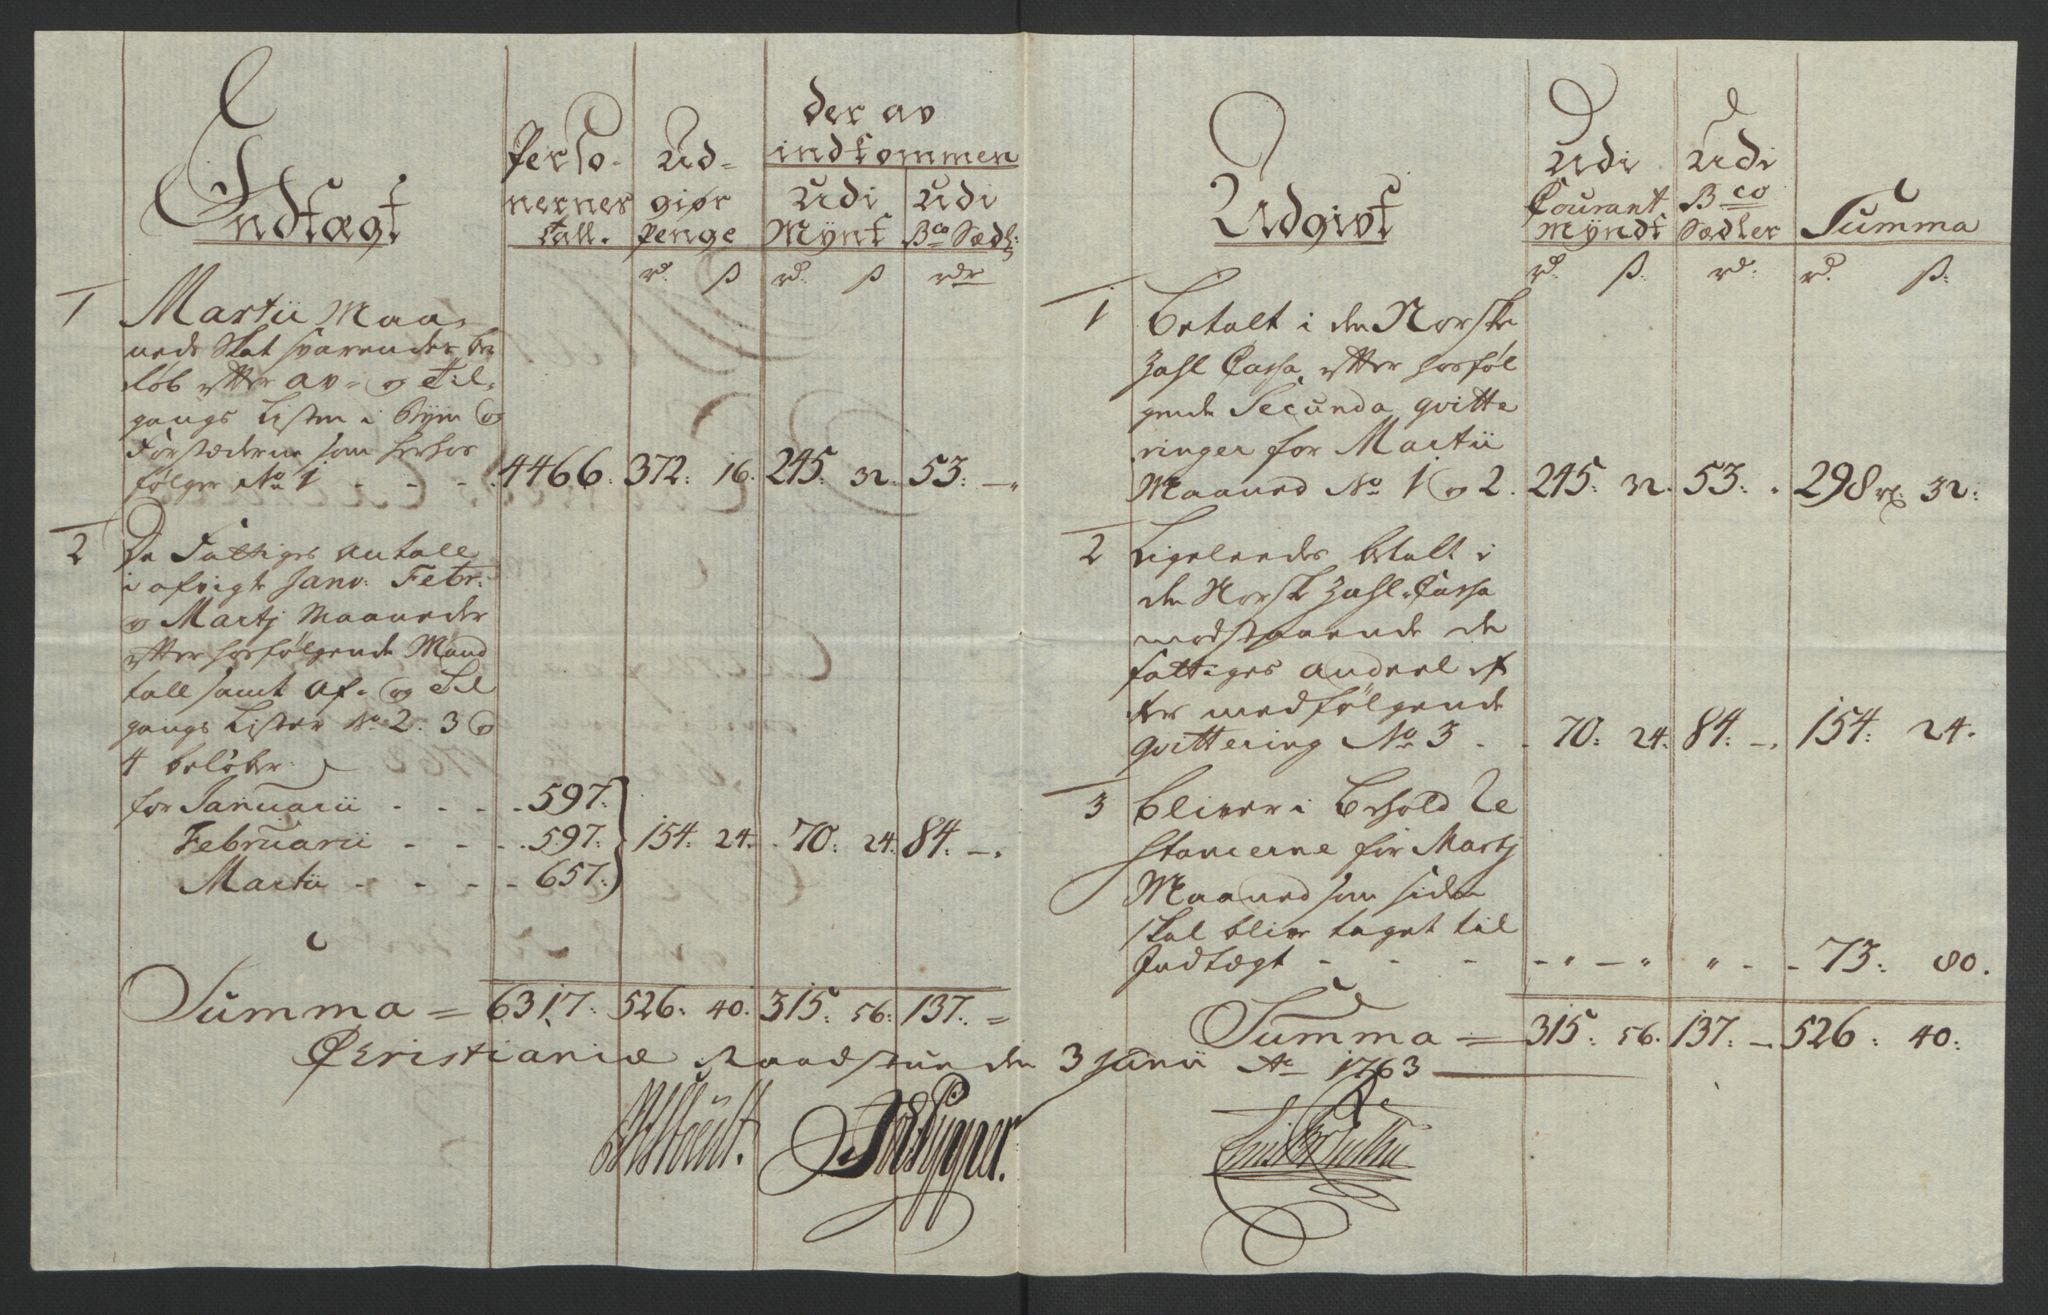 Indtægt
Perso-
nernes
tall.
Ud-
giør
penge
der av
indkommen
Udi
Mynt
Udi
Bco Sædl:
rd. ß rd. ß rdr
1 Martii Maa-
neds Skat svarendes be
løb efter av- og Til-
gangs Listen i Byen og
Forstæderne som herhos
følger No 1 - - - 4466. 372. 16. 245. 32. 53. —
2 De Fattiges Antall
i afvigte Janv: Febr:
og Martj Maaneder
efter hosfølgende Mand
tall samt Af- og Til
gangs Lister No 2. 3 og
4 beløber
for Januarii - - - - 597.
Februarii - - - - 597. 154. 24. 70. 24. 84. —.
Martii - - - - 657.
Summa = 6317. 526. 40. 315. 56. 137. =
Udgivt
Udi
Courant
Myndt
Udi
Bco
Sædler
Summa
rd. ß. rd. rd. ß.
1 Betalt i den Norske
Zahl Cassa efter hosføl
gende Secunda qvitte
ringer for Martii
Maaned No 1 og 2. 245. 32. 53. 298 rd. 32.
2 Ligeleedes betalt i
den Norske Zahl-Cassa
modstaaende de
fattiges andeel ef
ter medfølgende
qvittering No 3 - - 70. 24. 84. —. 154. 24.
3 bliver i Behold Re
stancerne for Martj
Maaned som siden
skal blive taget til
Indtægt - - - - " — " " - - 73. 80.
Summa = 315. 56. 137. —. 526. 40.
Christiania Raadstue den 3 Junii Ao 1763